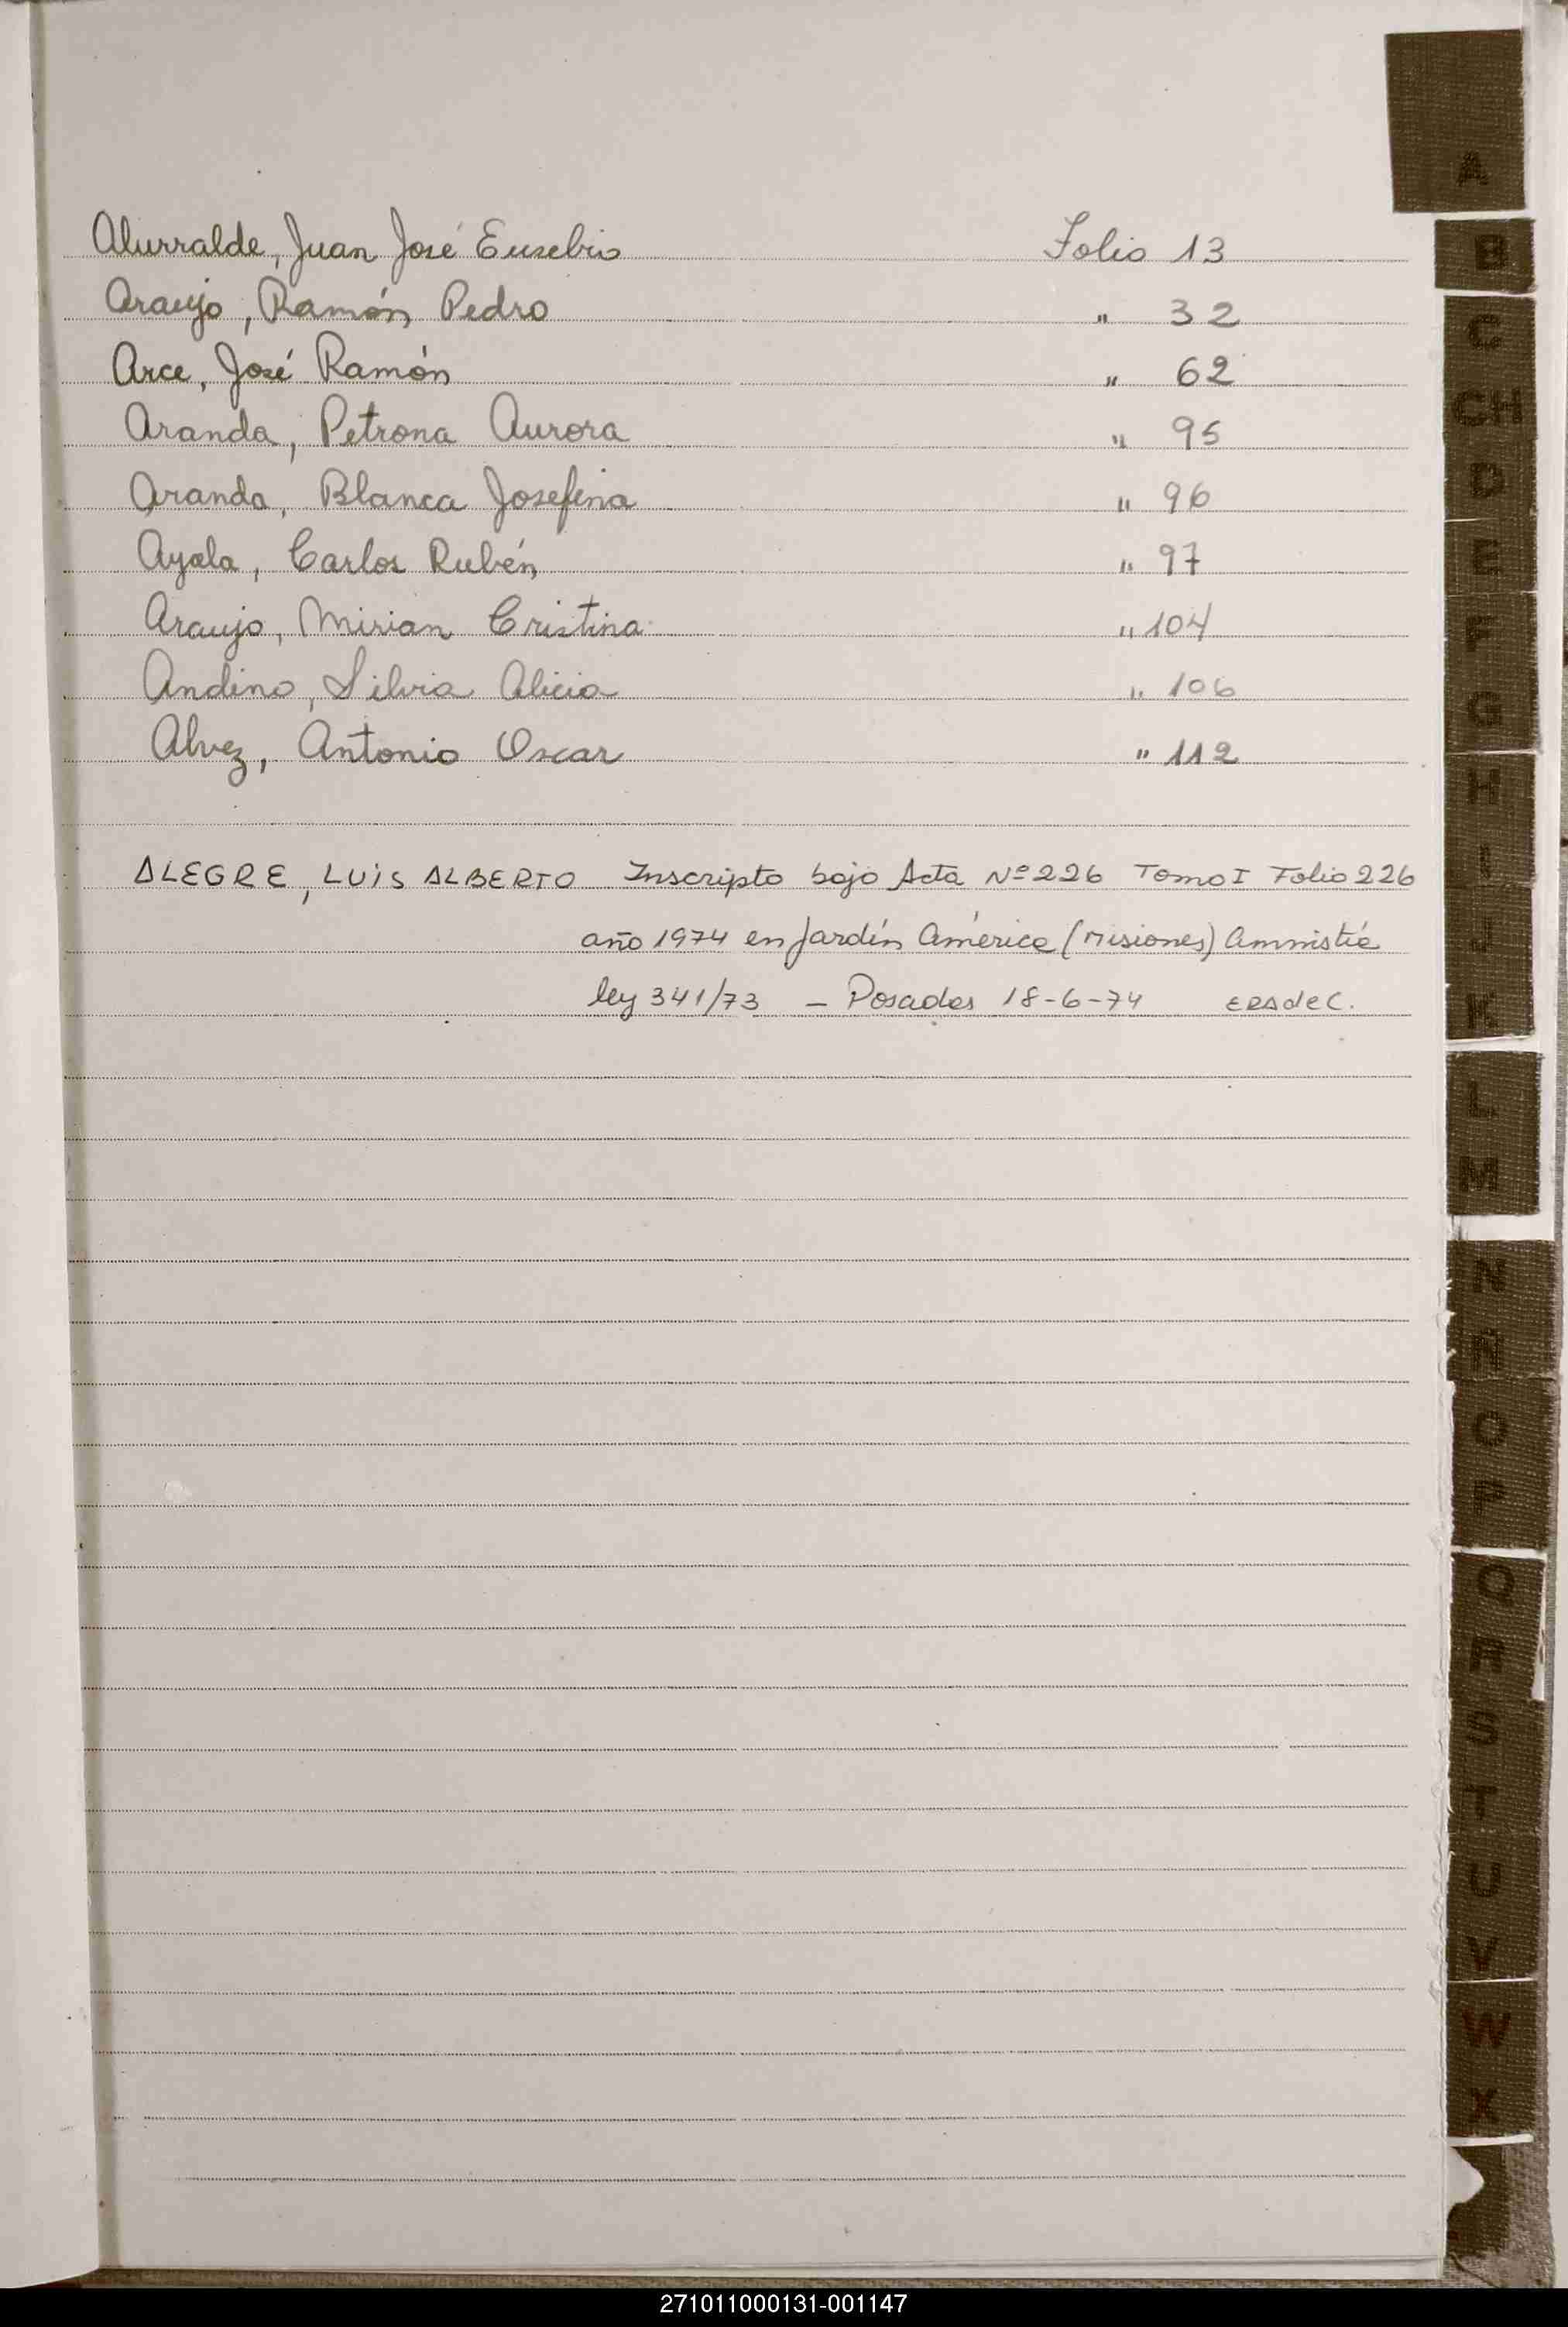 Alurralde, Juan José Eusebio Folio 13
Araujo, Ramón Pedro " 32
Arce, José Ramón " 62
Aranda, Petrona Aurora " 95
Aranda, Blanca Josefina " 96
Ayala, Carlos Rubén " 97
Araujo, Mirian Cristina " 104
Andino, Silvia Alicia " 106
Alvez, Antonio Oscar " 112
ALEGRE, LUIS ALBERTO Inscripto bajo Acta Nº 226 Tomo I Folio 226
año 1974 en Jardín América (Misiones) Amnistía
ley 341/73 — Posadas 18-6-74
A
B
C
CH
D
E
F
G
H
I
J
K
L
M
N
Ñ
O
P
Q
R
S
T
U
V
W
X
271011000131-001147